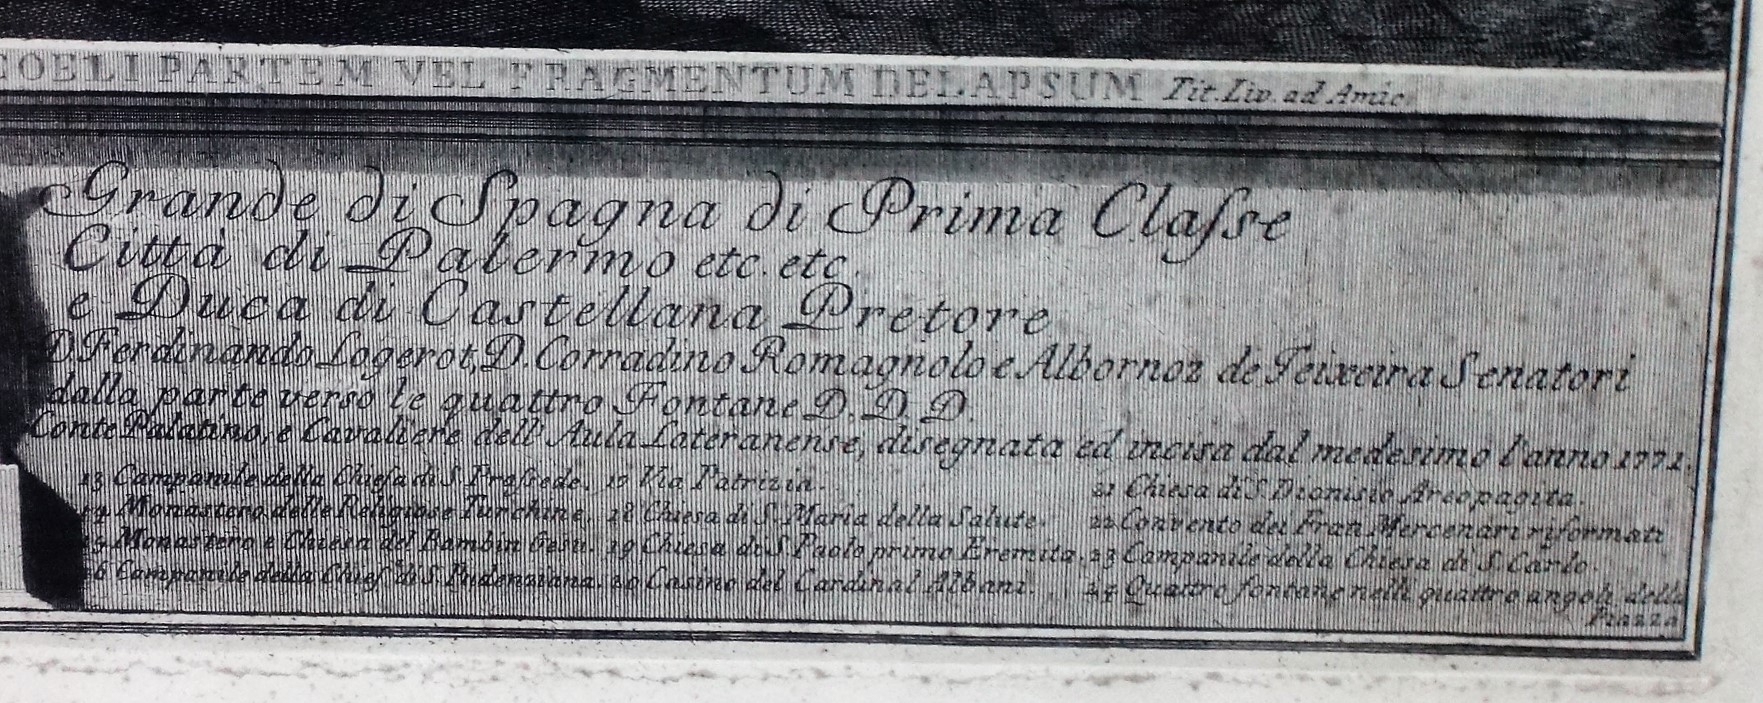 COELI PARTEM VEL FRAGMENTUM DELAPSUM Tit. Liv. ad Amic.
Grande di Spagna di Prima Claſse
Città di Palermo etc. etc.
e Duca di Castellana Pretore
D. Ferdinando Logerot, D. Corradino Romagnolo e Albornoz de Teixeira Senatori
dalla parte verso le quattro Fontane D. D. D.
Conte Palatino, e Cavaliere dell' Aula Lateranense, disegnata ed incisa dal medesimo l'anno 1771.
13 Campanile della Chieſa di S. Praſsede. 17 Via Patrizia. 21 Chiesa di S. Dionisio Areopagita.
14 Monastero delle Religiose Turchine. 18 Chiesa di S. Maria della Salute. 22 Convento dei Fran. Mercenari riformati
Monastero e Chiesa del Bambin Gesù. 19 Chiesa di S. Paolo primo Eremita. 23 Campanile della Chiesa di S. Carlo.
6 Campanile della Chieſ di S. Pudenziana. 20 Casino del Cardinal Albani. 24 Quattro fontane nelli quattro angoli della
Piazza